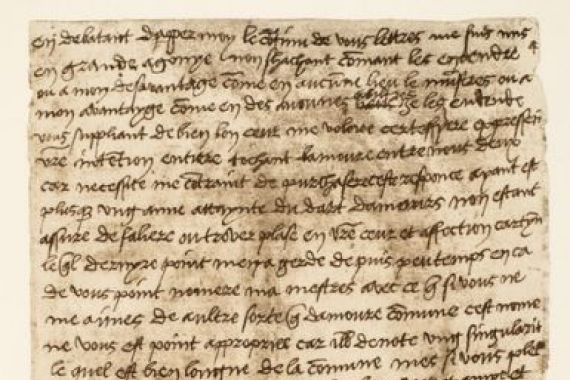 en debatant dapper moy le contenu de vous lettres me suis mis
en grande agonye non sachant comant les entendre
ou a mon desavantage come en aucune lieu le mustres ou a
mon avantayge come en des aucunes les entende
vous suppliant de bien bon ceur me voloire certefyere expressem
vre intention entiere tochant lamoure entre nous deux
car necessite me contraint de purchaser ceste responce ayant esté
plus que ung anne attaynte du dart damours non estant
assure de faliere ou trover plase en vre ceur et affection
le quel dernyre point men a gerdé depuis peu temps en ca
de vous point nomere ma mestres avec ce que si vous ne
me aimes de aultre sorte que damoure comune cest nome
ne vous est point approprice car ill denote ung singularite
le quel est bien longne de la comune mes si vous